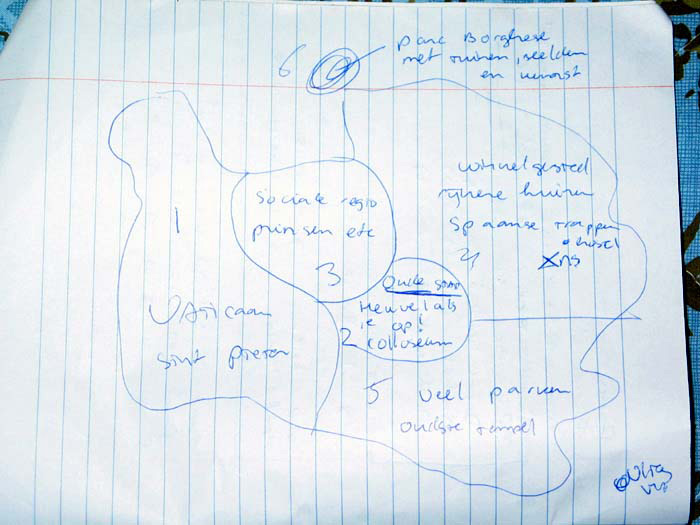 6
Parc Borghese
met tuinen, beelden
en
1
Vaticaan
sint pieter
sociale regio
prinsen etc
3
winkelgebied
rijkere huizen
Spaanse trappen
4
Oude stad
Heuvel als
je op!
2 Colloseum
5 veel parken
oudste tempel